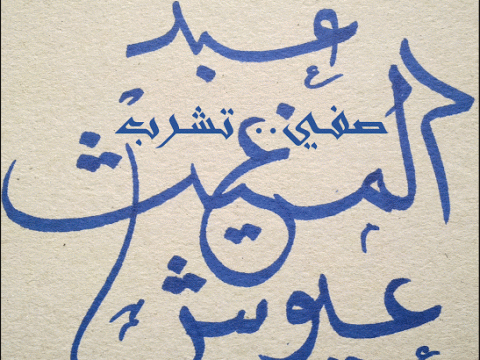 عبد
صفي .. تشرب
المغيث
عيوش